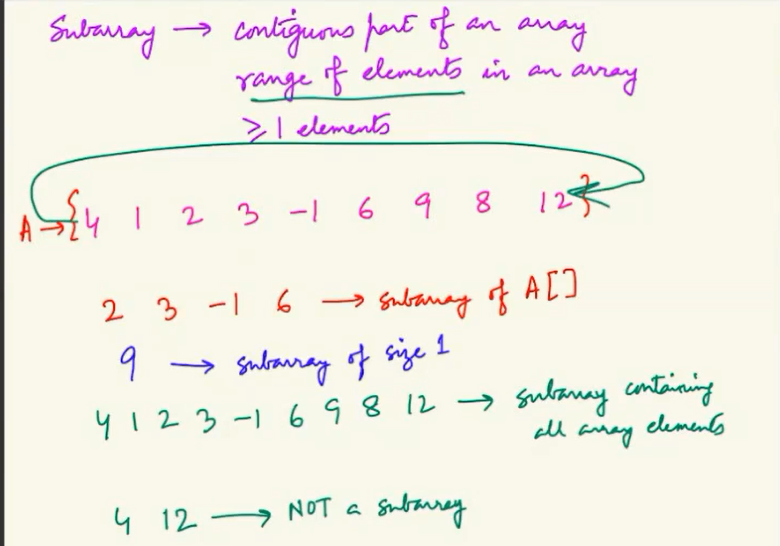 Subarray → contiguous part of an array
range of elements in an array
≥ 1 elements
A → { 4 1 2 3 -1 6 9 8 12 }
2 3 -1 6 → subarray of A[]
9 → subarray of size 1
4 1 2 3 -1 6 9 8 12 → subarray containing
all array elements
4 12 → NOT a subarray